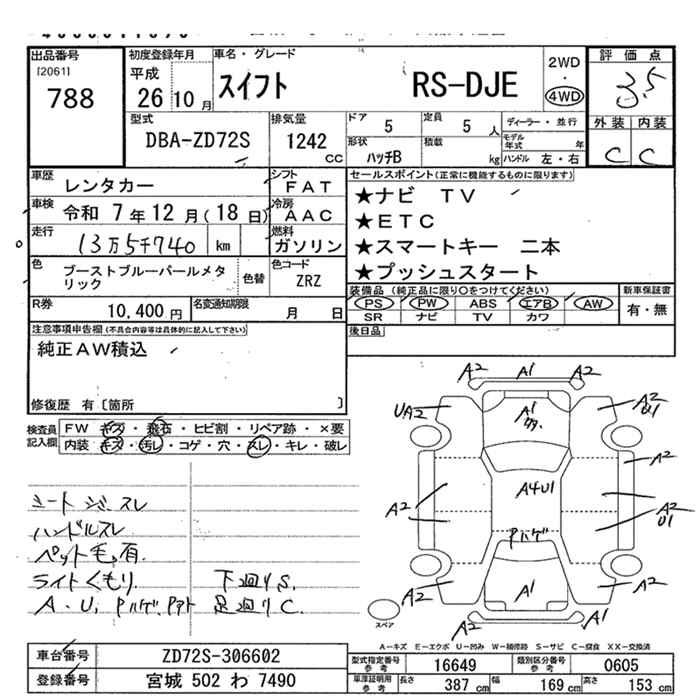 出品番号
[2061]
788
初度登録年月
平成
26 10 月
車名・グレード
スイフト RS-DJE
2WD
・
4WD
評価点
3.5
外装 内装
C C
型式
DBA-ZD72S
排気量
1242
CC
ドア
5
定員
5 人
形状
ハッチB
積載
kg
ディーラー・並行
モデル年式 年
ハンドル 左・右
車歴
レンタカー
シフト
FAT
車検
令和 7年12月(18日)
冷房
AAC
走行
13万5千740 km
燃料
ガソリン
色
ブーストブルーパールメタ
リック
色替
色コード
ZRZ
R券
10,400 円
名変通知期限
月 日
セールスポイント(正常に機能するものに限ります)
★ナビ TV
★ETC
★スマートキー 二本
★プッシュスタート
装備品 (純正品に限り〇をつけてください)
PS PW ABS エアB AW
SR ナビ TV カワ
新車保証書
有・無
後日品
注意事項申告欄(不具合内容等は具体的に記入して下さい)
純正AW積込
修復歴 有〔箇所 〕
検査員
記入欄
FW キズ・飛石・ヒビ割・リペア跡・×要
内装 キズ・汚レ・コゲ・穴・スレ・キレ・破レ
シートシミ、スレ
ハンドルスレ
ペット毛有.
ライトくもり. 下廻りS.
A・U, 足廻りC.
A2 A1 A2
UA2 A1 A2
U1
A2
A2 A4U1 A2
U1
Pハゲ
A2 A1 A2
スペア
A-キズ E-エクボ U-凹み W-補修跡 S-サビ C-腐食 XX-交換済
車台番号
ZD72S-306602
登録番号
宮城 502 わ 7490
型式指定番号
参考
16649
類別区分番号
参考
0605
車庫証明用
参考
長さ 387 cm 幅 169 cm 高さ 153 cm